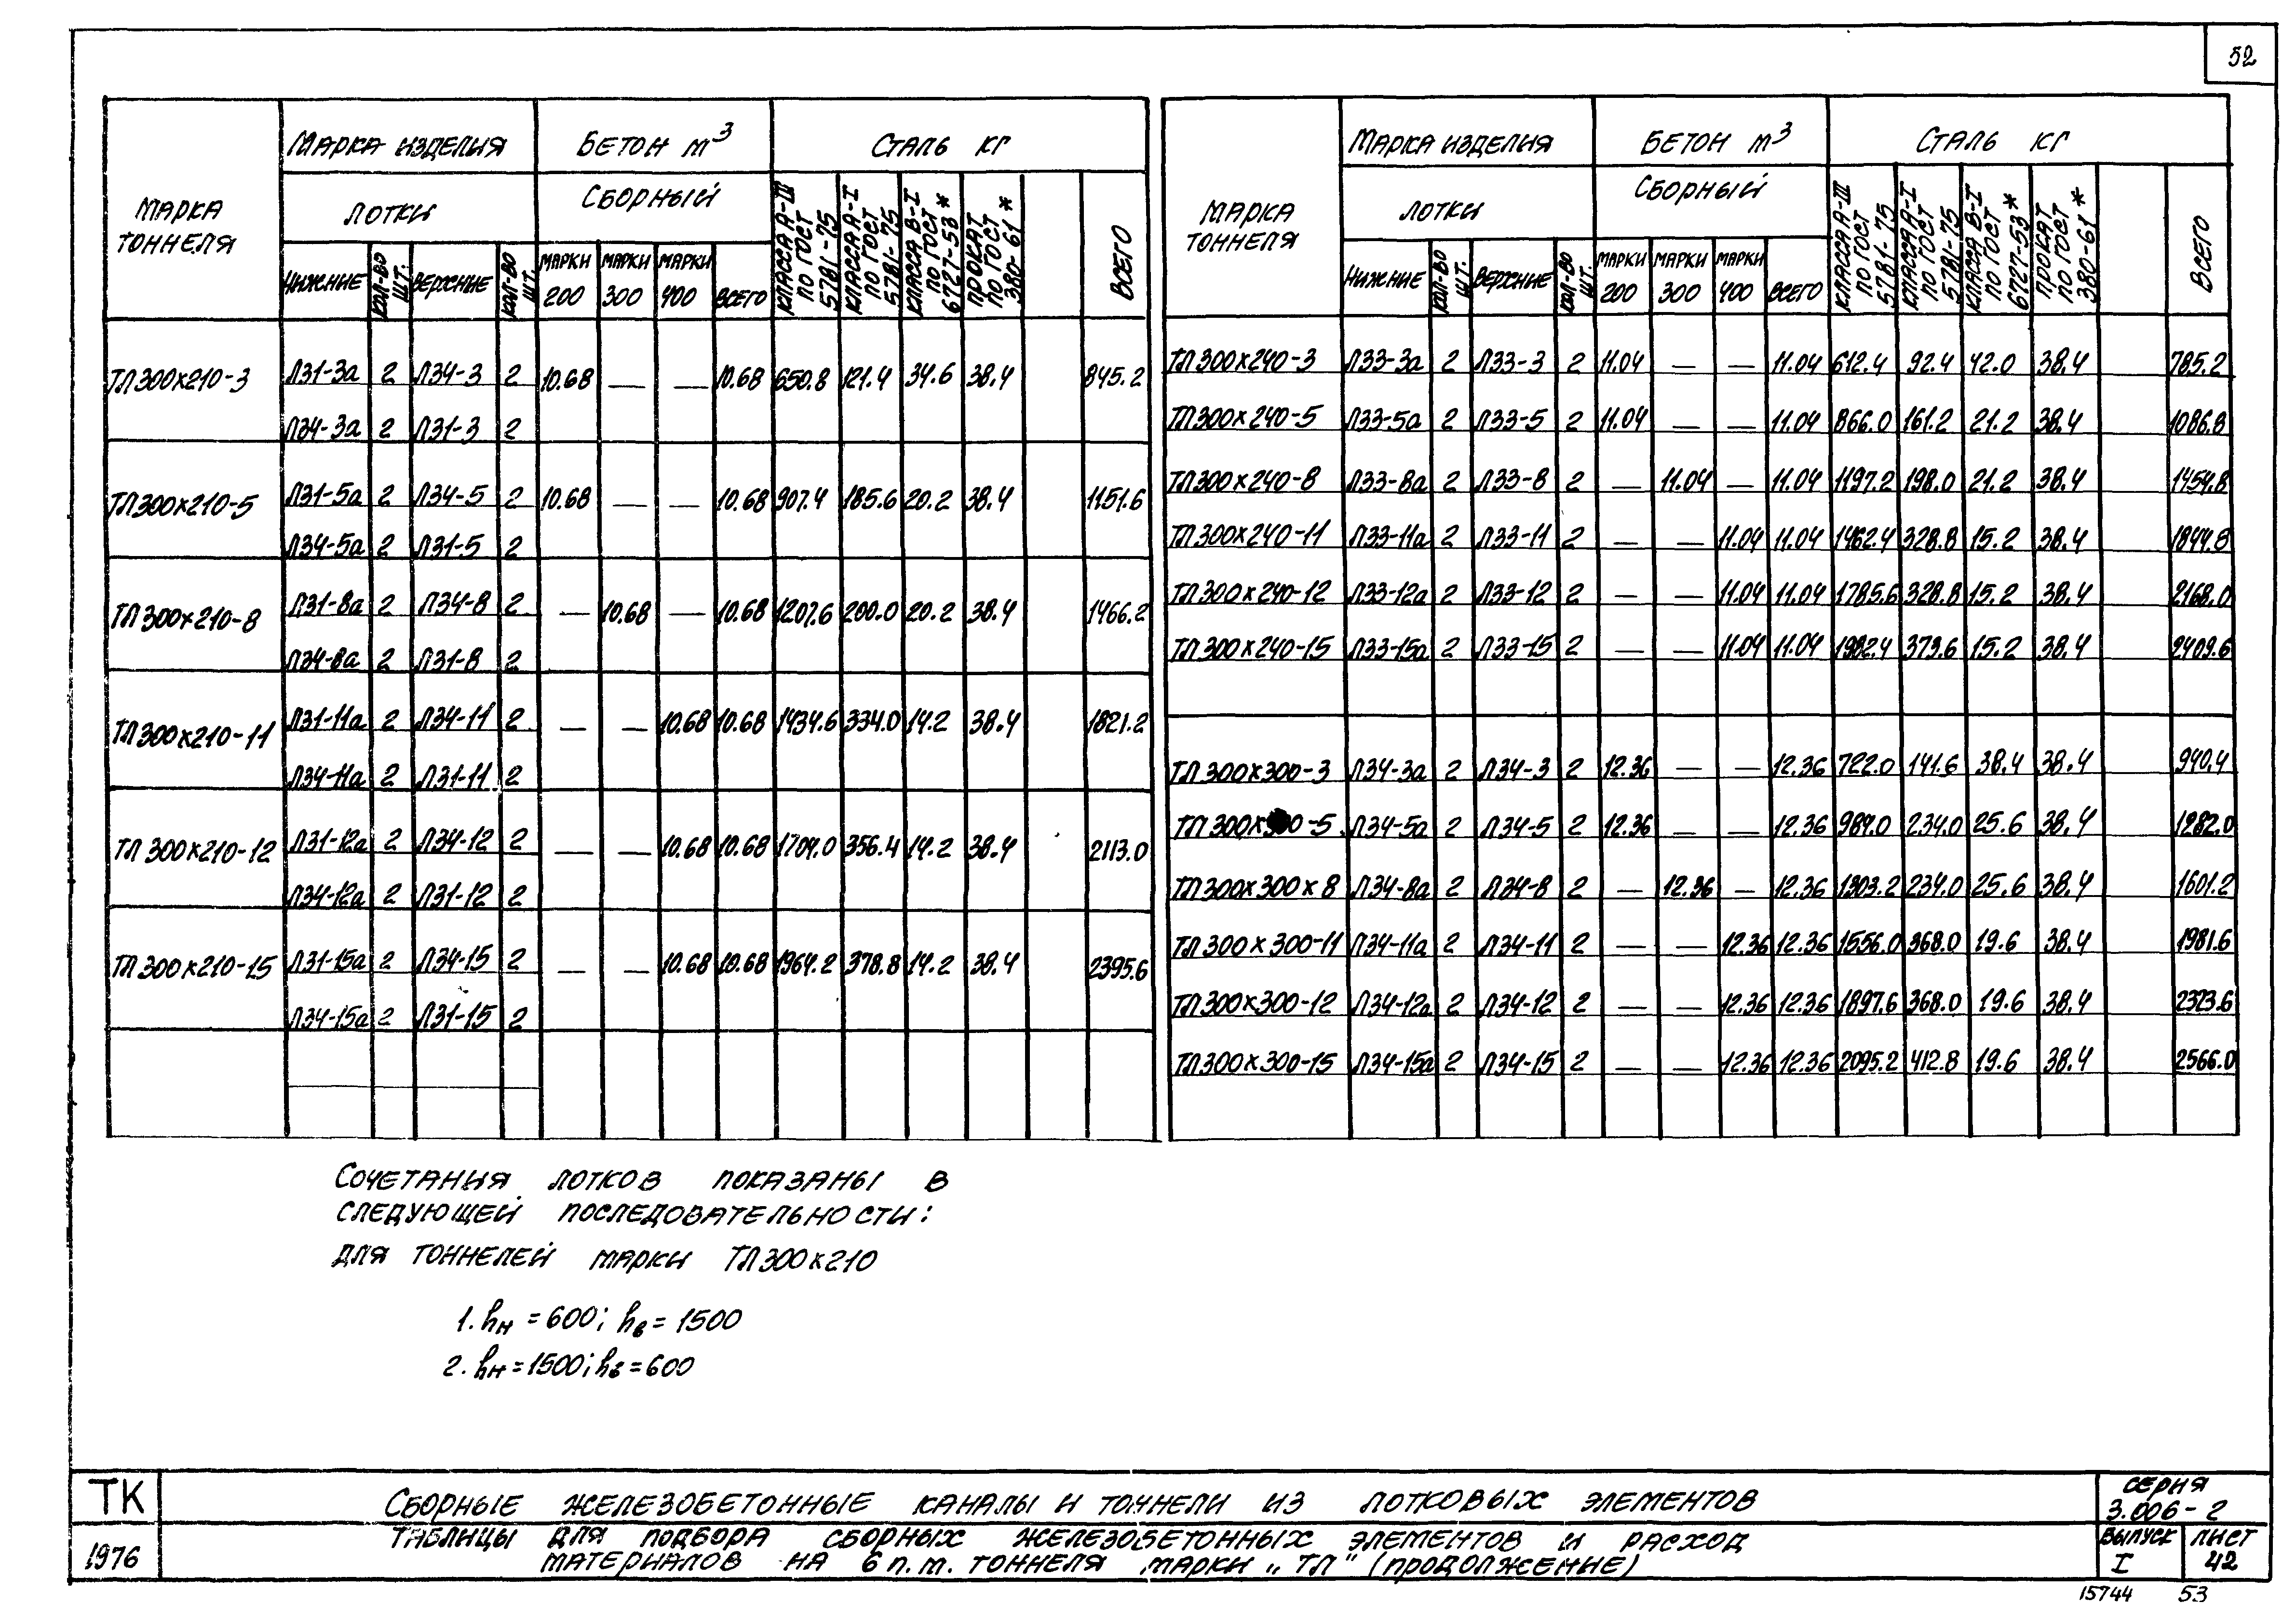 52
МАРКА ТОННЕЛЯ | МАРКА ИЗДЕЛИЯ | БЕТОН м³ | СТАЛЬ КГ
ЛОТКИ | СБОРНЫЙ | КЛАССА А-III ПО ГОСТ 5781-75 | КЛАССА А-I ПО ГОСТ 5781-75 | КЛАССА В-I ПО ГОСТ 6727-53* | ПРОКАТ ПО ГОСТ 380-61* | ВСЕГО
НИЖНИЕ | КОЛ-ВО ШТ. | ВЕРХНИЕ | КОЛ-ВО ШТ. | МАРКИ 200 | МАРКИ 300 | МАРКИ 400 | ВСЕГО
ТЛ300х210-3 | Л31-3а | 2 | Л34-3 | 2 | 10.68 | — | — | 10.68 | 650.8 | 121.4 | 34.6 | 38.4 | 845.2
Л34-3а | 2 | Л31-3 | 2
ТЛ300х210-5 | Л31-5а | 2 | Л34-5 | 2 | 10.68 | — | — | 10.68 | 907.4 | 185.6 | 20.2 | 38.4 | 1151.6
Л34-5а | 2 | Л31-5 | 2
ТЛ300х210-8 | Л31-8а | 2 | Л34-8 | 2 | — | 10.68 | — | 10.68 | 1207.6 | 200.0 | 20.2 | 38.4 | 1466.2
Л34-8а | 2 | Л31-8 | 2
ТЛ300х210-11 | Л31-11а | 2 | Л34-11 | 2 | — | — | 10.68 | 10.68 | 1434.6 | 334.0 | 14.2 | 38.4 | 1821.2
Л34-11а | 2 | Л31-11 | 2
ТЛ300х210-12 | Л31-12а | 2 | Л34-12 | 2 | — | — | 10.68 | 10.68 | 1704.0 | 356.4 | 14.2 | 38.4 | 2113.0
Л34-12а | 2 | Л31-12 | 2
ТЛ300х210-15 | Л31-15а | 2 | Л34-15 | 2 | — | — | 10.68 | 10.68 | 1964.2 | 378.8 | 14.2 | 38.4 | 2395.6
Л34-15а | 2 | Л31-15 | 2
МАРКА ТОННЕЛЯ | МАРКА ИЗДЕЛИЯ | БЕТОН м³ | СТАЛЬ КГ
ЛОТКИ | СБОРНЫЙ | КЛАССА А-III ПО ГОСТ 5781-75 | КЛАССА А-I ПО ГОСТ 5781-75 | КЛАССА В-I ПО ГОСТ 6727-53* | ПРОКАТ ПО ГОСТ 380-61* | ВСЕГО
НИЖНИЕ | КОЛ-ВО ШТ. | ВЕРХНИЕ | КОЛ-ВО ШТ. | МАРКИ 200 | МАРКИ 300 | МАРКИ 400 | ВСЕГО
ТЛ300х240-3 | Л33-3а | 2 | Л33-3 | 2 | 11.04 | — | — | 11.04 | 612.4 | 92.4 | 42.0 | 38.4 | 785.2
ТЛ300х240-5 | Л33-5а | 2 | Л33-5 | 2 | 11.04 | — | — | 11.04 | 866.0 | 161.2 | 21.2 | 38.4 | 1086.8
ТЛ300х240-8 | Л33-8а | 2 | Л33-8 | 2 | — | 11.04 | — | 11.04 | 1197.2 | 198.0 | 21.2 | 38.4 | 1454.8
ТЛ300х240-11 | Л33-11а | 2 | Л33-11 | 2 | — | — | 11.04 | 11.04 | 1462.4 | 328.8 | 15.2 | 38.4 | 1844.8
ТЛ300х240-12 | Л33-12а | 2 | Л33-12 | 2 | — | — | 11.04 | 11.04 | 1785.6 | 328.8 | 15.2 | 38.4 | 2168.0
ТЛ300х240-15 | Л33-15а | 2 | Л33-15 | 2 | — | — | 11.04 | 11.04 | 1982.4 | 373.6 | 15.2 | 38.4 | 2409.6
ТЛ300х300-3 | Л34-3а | 2 | Л34-3 | 2 | 12.36 | — | — | 12.36 | 722.0 | 141.6 | 38.4 | 38.4 | 940.4
ТЛ300х300-5 | Л34-5а | 2 | Л34-5 | 2 | 12.36 | — | — | 12.36 | 984.0 | 234.0 | 25.6 | 38.4 | 1282.0
ТЛ300х300х8 | Л34-8а | 2 | Л34-8 | 2 | — | 12.36 | — | 12.36 | 1303.2 | 234.0 | 25.6 | 38.4 | 1601.2
ТЛ300х300-11 | Л34-11а | 2 | Л34-11 | 2 | — | — | 12.36 | 12.36 | 1556.0 | 368.0 | 19.6 | 38.4 | 1981.6
ТЛ300х300-12 | Л34-12а | 2 | Л34-12 | 2 | — | — | 12.36 | 12.36 | 1897.6 | 368.0 | 19.6 | 38.4 | 2323.6
ТЛ300х300-15 | Л34-15а | 2 | Л34-15 | 2 | — | — | 12.36 | 12.36 | 2095.2 | 412.8 | 19.6 | 38.4 | 2566.0
СОЧЕТАНИЯ ЛОТКОВ ПОКАЗАНЫ В
СЛЕДУЮЩЕЙ ПОСЛЕДОВАТЕЛЬНОСТИ:
ДЛЯ ТОННЕЛЕЙ МАРКИ ТЛ300х210
1. hн = 600; hв = 1500
2. hн = 1500; hв = 600
ТК
1976
СБОРНЫЕ ЖЕЛЕЗОБЕТОННЫЕ КАНАЛЫ И ТОННЕЛИ ИЗ ЛОТКОВЫХ ЭЛЕМЕНТОВ
ТАБЛИЦЫ ДЛЯ ПОДБОРА СБОРНЫХ ЖЕЛЕЗОБЕТОННЫХ ЭЛЕМЕНТОВ И РАСХОД
МАТЕРИАЛОВ НА 6 п.м. ТОННЕЛЯ МАРКИ „ТЛ" (ПРОДОЛЖЕНИЕ)
СЕРИЯ
3.006-2
ВЫПУСК I
ЛИСТ 42
15744 53